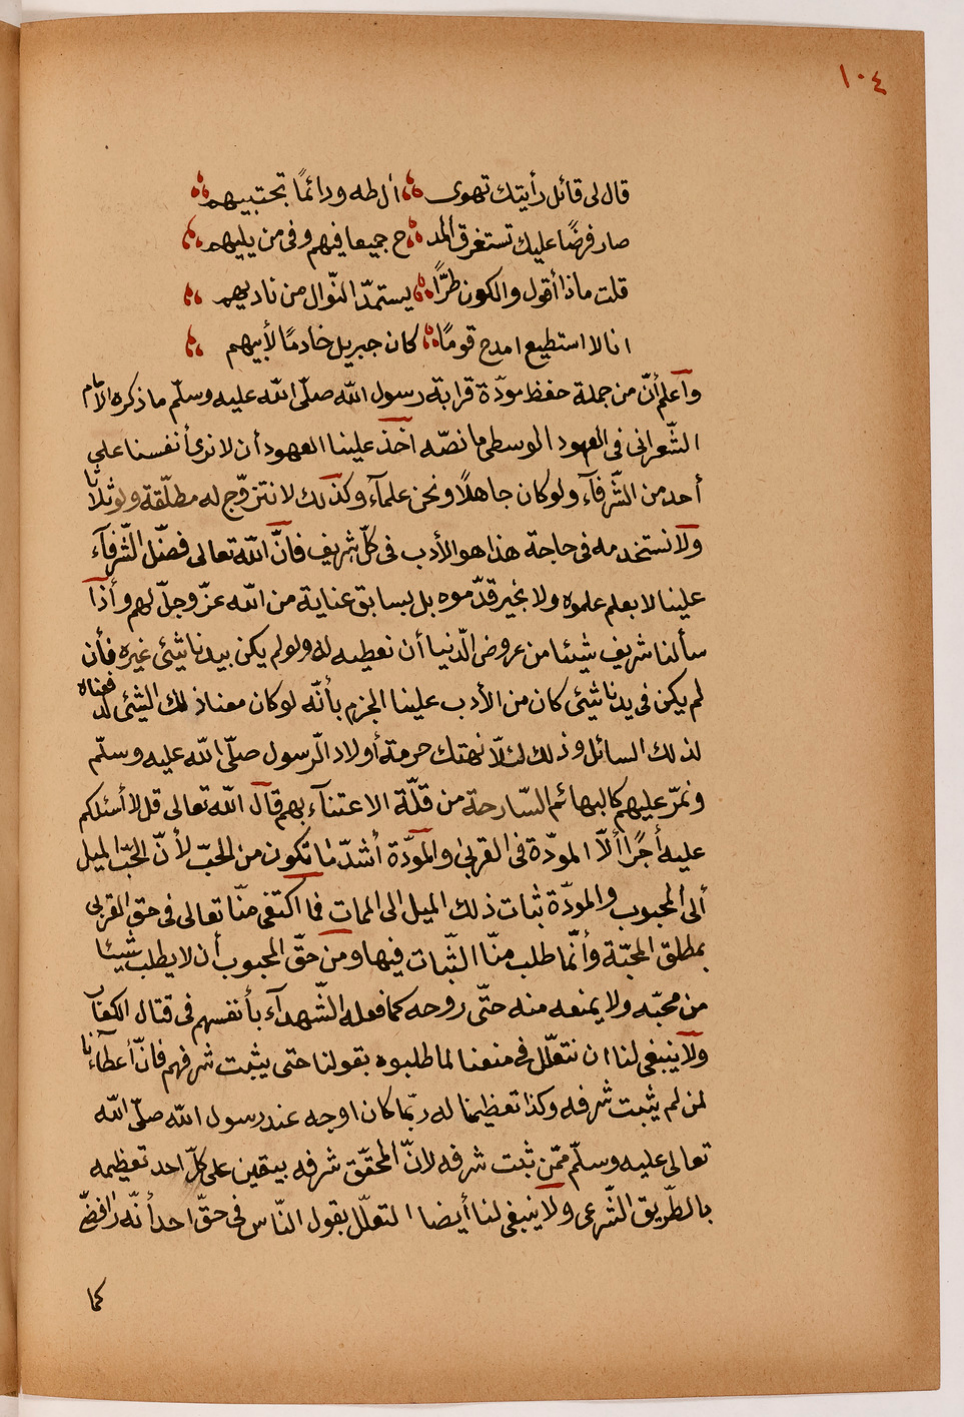 ١٠٤
قال لى قائل رأيتك تهوى آل طه ودائمًا تجتبيهم
صار فرضًا عليك تستغرق المد ح جميعا فيهم وفى من يليهم
قلت ماذا أقول والكون طرًّا يستمدّ النّوال من ناديهم
انا لا استطيع امدح قومًا كان جبريل خادمًا لأبيهم
وآعلم أنّ من جملة حفظ مودّة قرابة رسول الله صلّى الله عليه وسلّم ما ذكره الامام
الشّعرانى فى العهود الوسطى ما نصّه اخذ علينا العهود أن لا نرى أنفسنا على
أحد من الشّرفآء ولو كان جاهلًا ونحن علمآء وكذلك لا نتزوّج له مطلّقة ولو ثلاثا
ولا نستخدمه فى حاجة هذا هو الأدب فى كلّ شريف فانّ الله تعالى فضّل الشّرفآء
علينا لا بعلم علموه ولا بخير قدّموه بل بسابق عناية من الله عزّ وجلّ لهم وأذا
سألنا شريف شيئا من عروض الدّنيا أن نعطيه له ولو لم يكن بيدنا شيئ غيره فأن
لم يكن فى يدنا شيئ كان من الأدب علينا الجزم بأنّه لو كان معنا ذلك الشيئ لدفعناه
لذلك السائل وذلك لئلّا نهتك حرمة أولاد الرّسول صلّى الله عليه وسلّم
ونمرّ عليهم كالبهائم السّارحة من قلّة الاعتنآء بهم قال الله تعالى قل لا أسئلكم
عليه أجرًا ألّا المودّة فى القربى والمودّة أشدّ ما تكون من الحبّ لأنّ الحبّ الميل
ألى المحبوب والمودّة ثبات ذلك الميل الى الممات فما اكتفى منّا تعالى فى حق القربى
بمطلق المحبّة وأنّما طلب منّا الثّبات فيها ومن حقّ المحبوب أن لا يطلب شيئا
من محبّه ولا يمنعه منه حتّى روحه كما فعله الشّهدآء بأنفسهم فى قتال الكفار
ولا ينبغى لنا ان نتعلّل فى منعنا لما طلبوه بقولنا حتى يثبت شرفهم فانّ أعطآءنا
لمن لم يثبت شرفه وكذا تعظيمنا له ربّما كان اوجه عند رسول الله صلّى الله
تعالى عليه وسلّم ممّن ثبت شرفه لانّ المحقّق شرفه بيقين على كلّ احد تعظيمه
بالطّريق الشّرعى ولا ينبغى لنا أيضا التعلّل بقول النّاس فى حقّ احد أنّه رافضىّ
كما